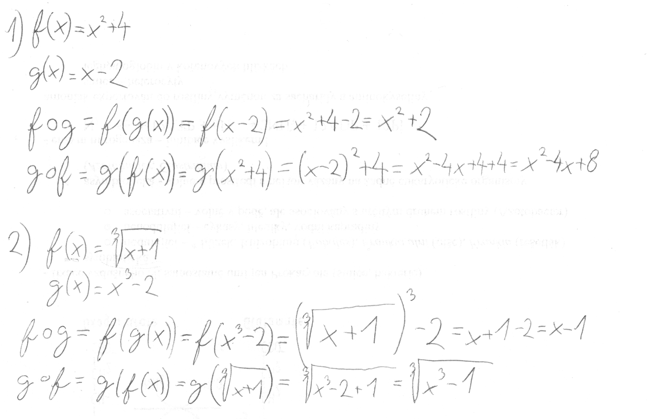 1) f(x)=x²+4
g(x)=x-2
f∘g = f(g(x))=f(x-2)=x²+4-2=x²+2
g∘f = g(f(x)=g(x²+4)=(x-2)²+4=x²-4x+4+4=x²-4x+8
2) f(x)=∛(x+1)
g(x)=x³-2
f∘g = f(g(x))=f(x³-2)=(∛(x+1))³-2=x+1-2=x-1
g∘f = g(f(x)=g(∛(x+1))=∛(x³-2+1)=∛(x³-1)